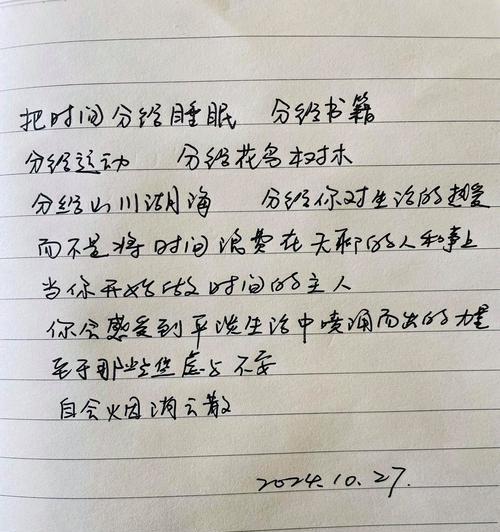 把时间分给睡眠 分给书籍
分给运动 分给花鸟树木
分给山川湖海 分给你对生活的热爱
而不是将时间浪费在无聊的人和事上
当你开始做时间的主人
你会感受到平淡生活中喷涌而出的力量
至于那些焦虑与不安
自会烟消云散
2024.10.27.